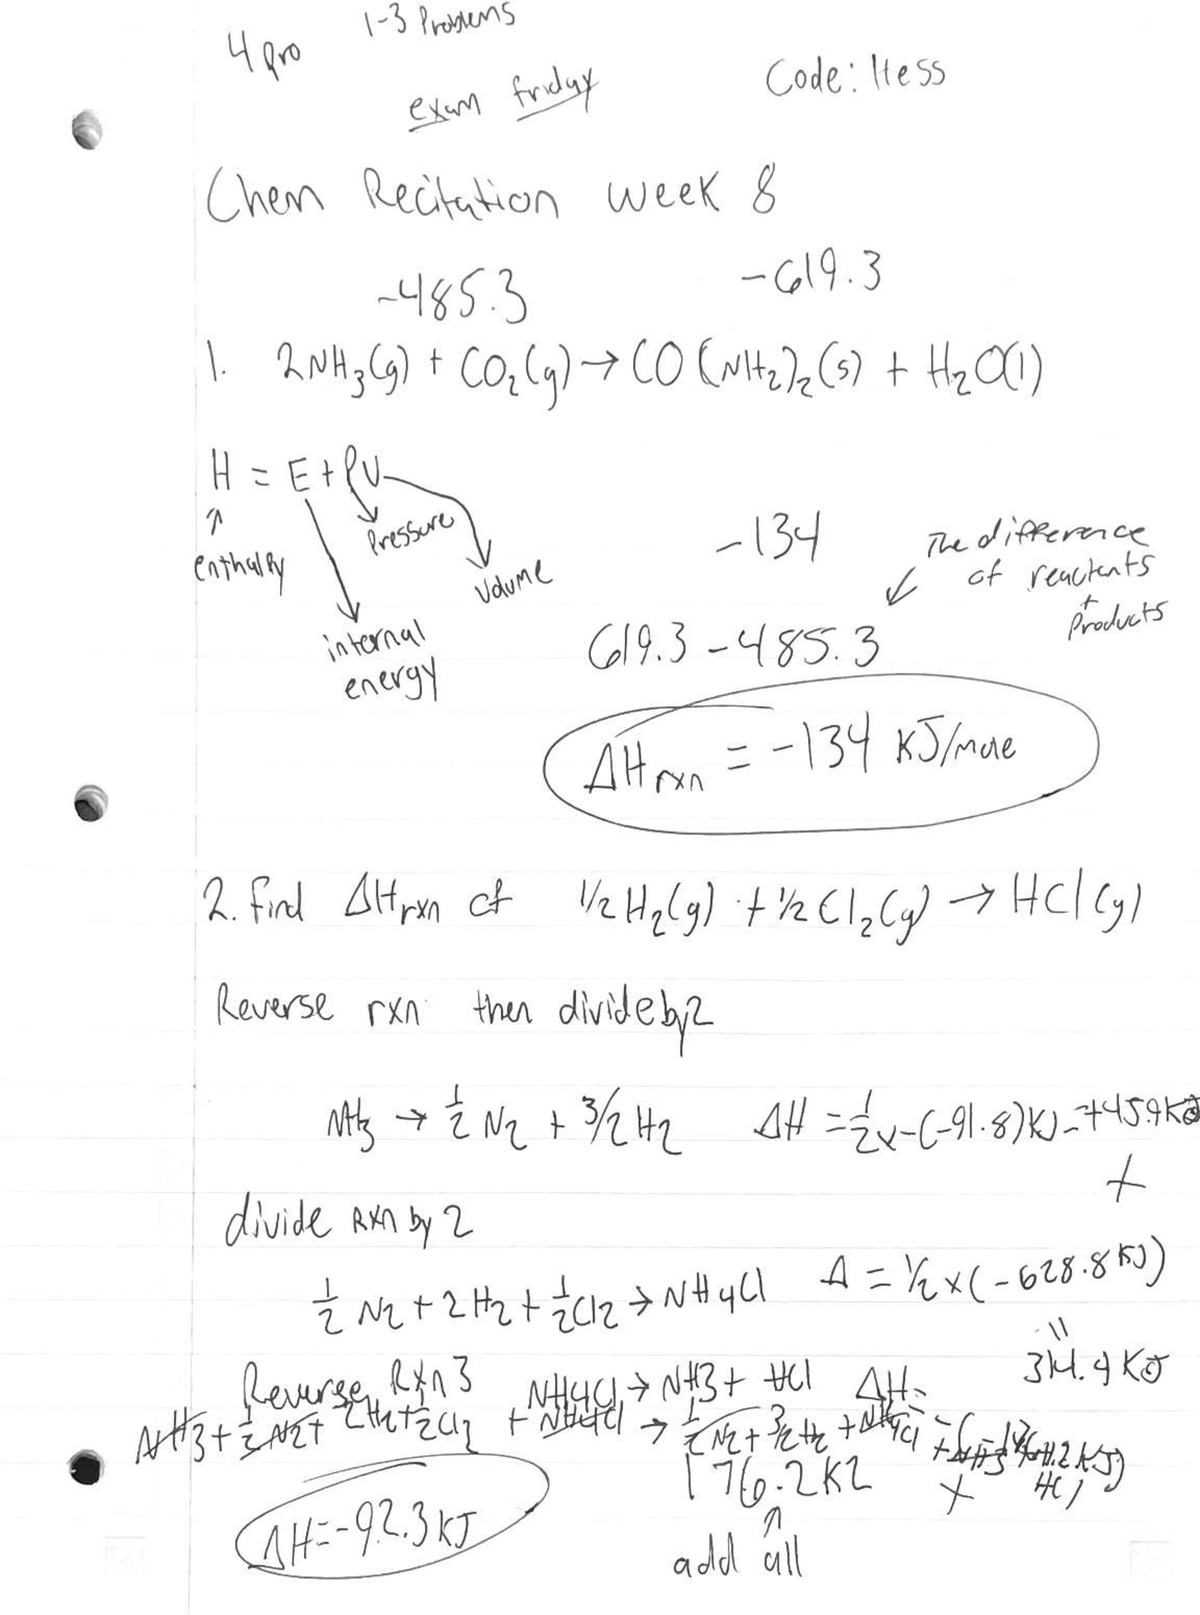 1-3 Problems
4 pro
Code: Hess
exam friday
Chem Recitation week 8
-485.3 -619.3
1. 2NH₃(g) + CO₂(g) → CO(NH₂)₂(s) + H₂O(l)
H = E + PV
enthalpy
Pressure
Volume
internal
energy
-134
The difference
of reactents
+
Products
619.3 - 485.3
ΔHrxn = -134 KJ/mole
2. find ΔHrxn of ½H₂(g) + ½Cl₂(g) → HCl(g)
Reverse rxn then divide by 2
NH₃ → ½ N₂ + 3/2 H₂ ΔH = ½ x -(-91.8)KJ = +45.9KJ
+
divide Rxn by 2
½ N₂ + 2H₂ + ½Cl₂ → NH₄Cl Δ = ½ x (-628.8KJ)
=
314.4 KJ
Reverse Rxn 3 NH4Cl → NH3 + HCl ΔH=
NH3 + ½N2 + 2H2 + ½Cl2 + NH4Cl → ½N2 + 3/2H2 + NH4Cl + NH3
HCl
176.2K2 +
ΔH = -92.3KJ
add all